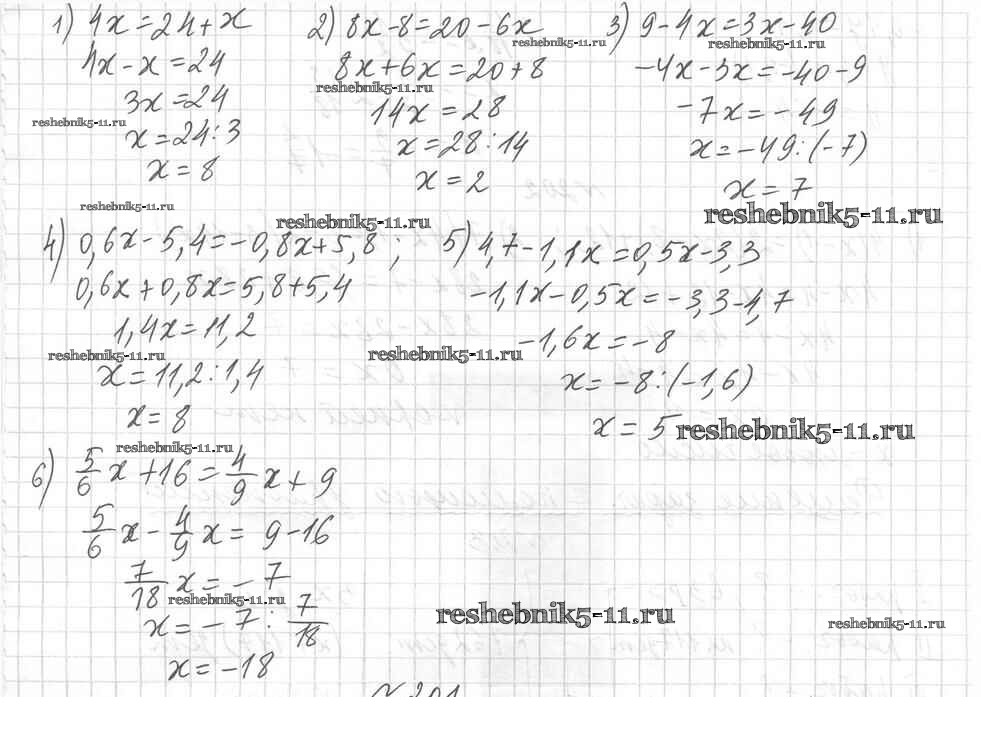 1) 4x=24+x
4x-x=24
3x=24
reshebnik5-11.ru
x=24:3
x=8
reshebnik5-11.ru
2) 8x-8=20-6x
reshebnik5-11.ru
8x+6x=20+8
reshebnik5-11.ru
14x=28
x=28:14
x=2
reshebnik5-11.ru
3) 9-4x=3x-40
reshebnik5-11.ru
-4x-3x=-40-9
-7x=-49
x=-49:(-7)
x=7
reshebnik5-11.ru
4) 0,6x-5,4=-0,8x+5,8;
0,6x+0,8x=5,8+5,4
1,4x=11,2
reshebnik5-11.ru
x=11,2:1,4
x=8
reshebnik5-11.ru
5) 4,7-1,1x=0,5x-3,3
-1,1x-0,5x=-3,3-4,7
-1,6x=-8
reshebnik5-11.ru
x=-8:(-1,6)
x=5
reshebnik5-11.ru
6) 5/6x+16=4/9x+9
5/6x-4/9x=9-16
7/18x=-7
reshebnik5-11.ru
x=-7:7/18
x=-18
reshebnik5-11.ru
reshebnik5-11.ru